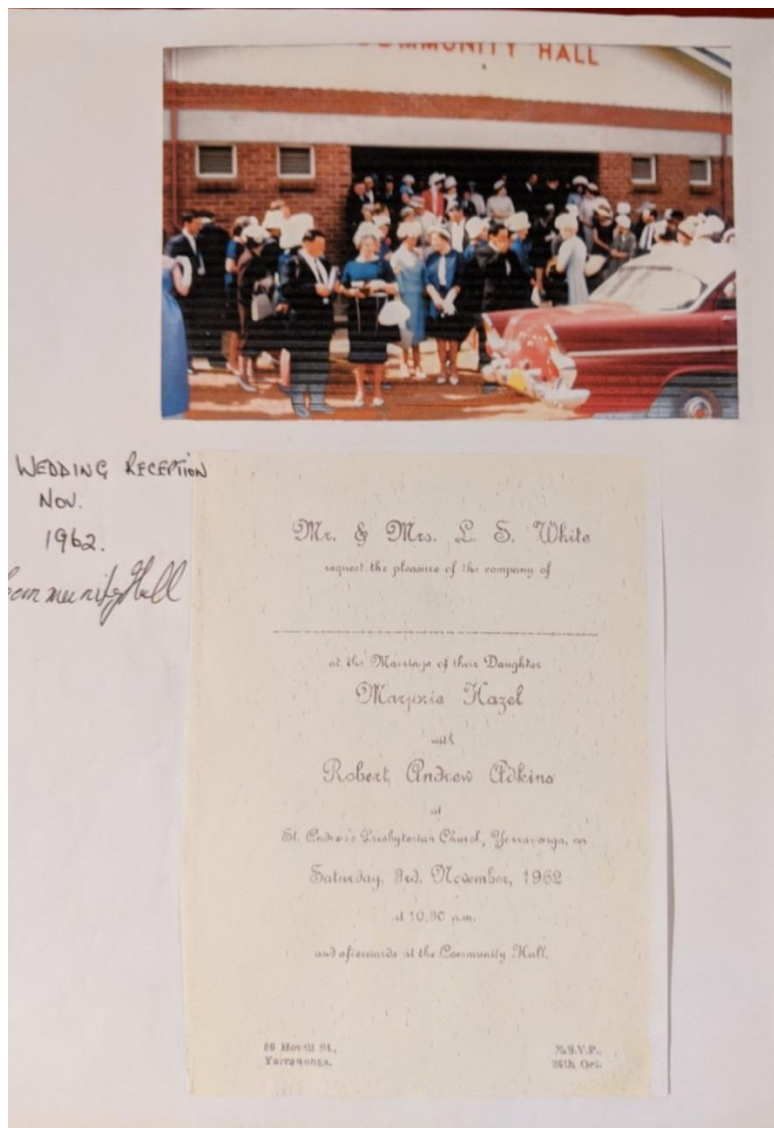 COMMUNITY HALL
WEDDING RECEPTION
NOV.
1962.
Community Hall
Mr. & Mrs. L. S. White
request the pleasure of the company of
at the Marriage of their Daughter
Marjorie Hazel
with
Robert Andrew Adkins
at
St. Andrew's Presbyterian Church, Yarrawonga, on
Saturday, 3rd. November, 1962
at 10.30 a.m.
and afterwards at the Community Hall.
Hovell St.,
Yarrawonga.
R.S.V.P.,
26th, Oct.